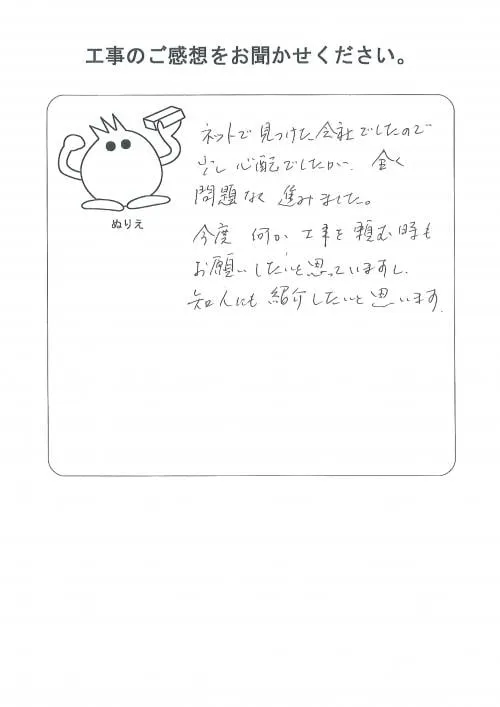 工事のご感想をお聞かせください。
ぬりえ
ネットで見つけた会社でしたので
少し心配でしたが、全く
問題なく進みました。
今度 何か工事を頼む時も
お願いしたいと思っていますし、
知人にも紹介したいと思います。